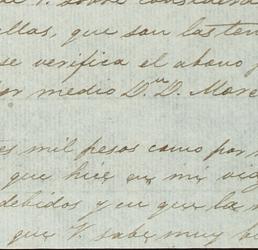 de V. sobre considera
llas, que son las ten
se verifica el abono
por medio Dn. D. More
es mil pesos como por
que hice en mi via
debidos y en que la
que V. sabe muy b